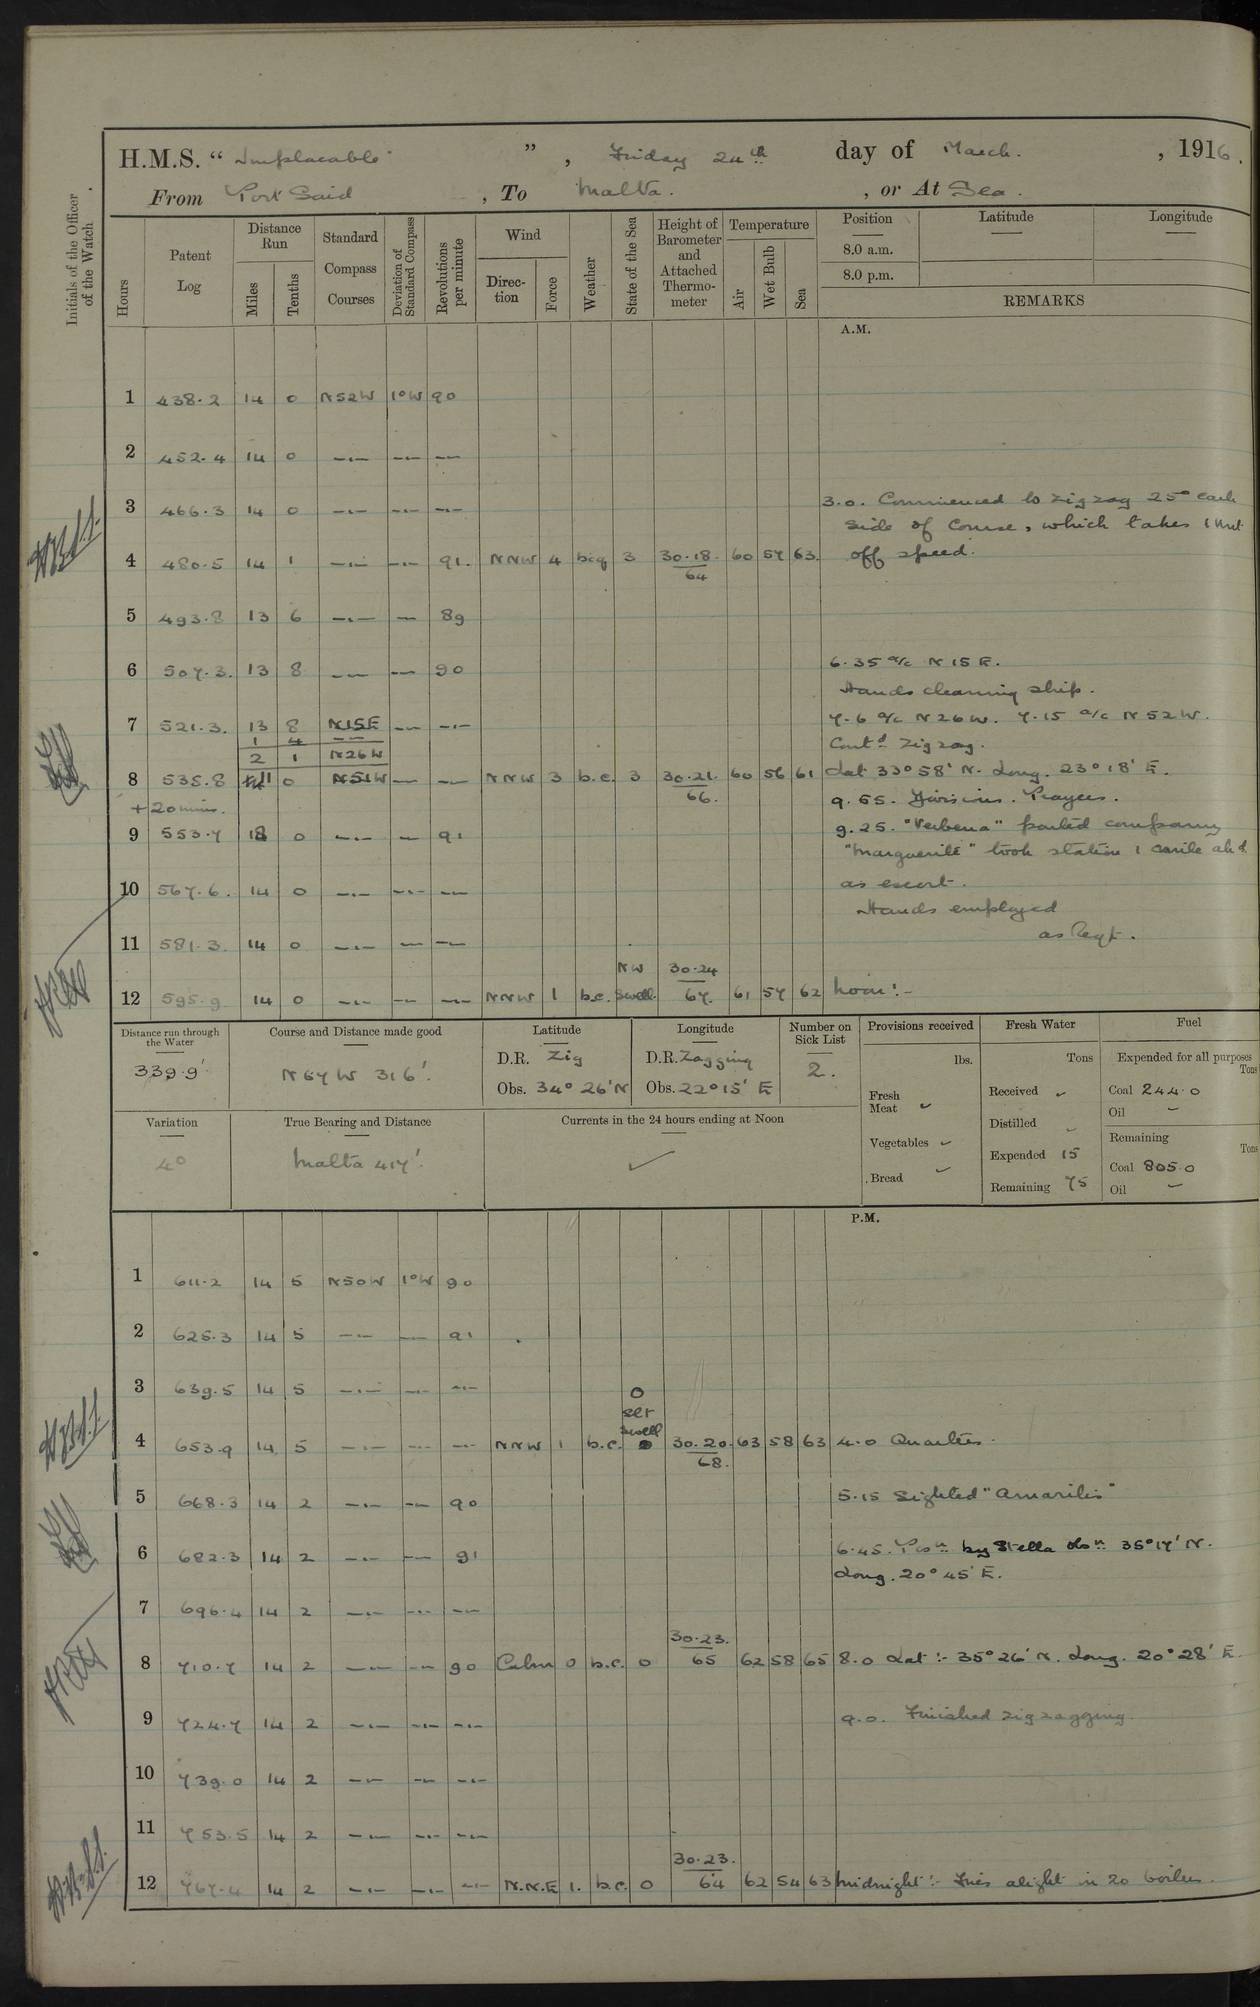 H.M.S. "Implacable", Friday 24th day of March, 1916.
From Port Said, To Malta, or At Sea.
Initials of the Officer of the Watch
Hours
Patent Log
Distance Run
Miles
Tenths
Standard Compass Courses
Deviation of Standard Compass
Revolutions per minute
Wind
Direction
Force
Weather
State of the Sea
Height of Barometer and Attached Thermometer
Temperature
Air
Wet Bulb
Sea
Position
Latitude
Longitude
8.0 a.m.
8.0 p.m.
REMARKS
A.M.
1 438.2 14 0 N52W 1°W 90
2 452.4 14 0 —.— —.— —
3 466.3 14 0 —.— —.— —.— 3.0. Commenced to zigzag 25° each
side of course, which takes 1 knt
4 480.5 14 1 —.— —.— 91. NNW 4 bcq 3 30.18 60 57 63. off speed.
64
5 493.8 13 6 —.— — 89
6 507.3. 13 8 —— —.— 90 6.35 a/c N15E.
Hands cleaning ship.
7 521.3. 13 8 N15E —— —.— 7.6 a/c N26W. 7.15 a/c N52W.
1 4 ——
Contd zigzag.
2 1 N26W
8 535.8 11 0 N51W —— —— NNW 3 b.c. 3 30.21. 60 56 61 Lat 33°58' N. Long. 23°18' E.
66.
+20 mins. 9.55. Divisions. Prayers.
9 553.7 18 0 —.— — 91 9.25. "Verbena" parted company
"Marguerite" took station 1 cable ahd
10 567.6. 14 0 —.— —.— —.— as escort.
Hands employed
11 581.3. 14 0 —.— —— —.— as reqt.
NW 30.24
12 595.9 14 0 —.— —— —.— NNW 1 b.c. Swell 67. 61 57 62 Noon:-
Distance run through the Water
339.9'
Course and Distance made good
N67W 316'.
Latitude
D.R. Zig
Obs. 34° 26'N
Longitude
D.R. Zagging
Obs. 22°15' E
Number on Sick List
2.
Provisions received
lbs.
Fresh Meat ✓
Vegetables ✓
Bread ✓
Fresh Water
Tons
Received ✓
Distilled ✓
Expended 15
Remaining 75
Fuel
Expended for all purposes
Tons
Coal 244.0
Oil —
Remaining
Tons
Coal 805.0
Oil —
Variation
4°
True Bearing and Distance
Malta 417'.
Currents in the 24 hours ending at Noon
✓
P.M.
1 611.2 14 5 N50W 1°W 90
2 625.3 14 5 —— —— 91
3 639.5 14 5 —.— —.— —.—
0
swell
4 653.9 14 5 —.— —.— —.— NNW 1 b.c. 30.20. 63 58 63 4.0 Quarters.
68.
5 668.3 14 2 —.— —.— 90 5.15 Sighted "Amarilis"
6 682.3 14 2 —.— —— 91 6.45. Posn by Stella Obsn 35°17' N.
Long. 20°45' E.
7 696.4 14 2 —.— —.— —.—
30.23.
8 710.7 14 2 —.— —.— 90 Calm 0 b.c. 0 65 62 58 65 8.0 Lat:- 35°26' N. Long. 20°28' E.
9 724.7 14 2 —.— —.— —.— 9.0. Finished zigzagging.
10 739.0 14 2 —.— —.— —.—
11 753.5 14 2 —.— —.— —.—
30.23.
12 767.4 14 2 —.— —.— —.— N.N.E 1. b.c. 0 64 62 54 63 Midnight:- Fires alight in 20 boilers.